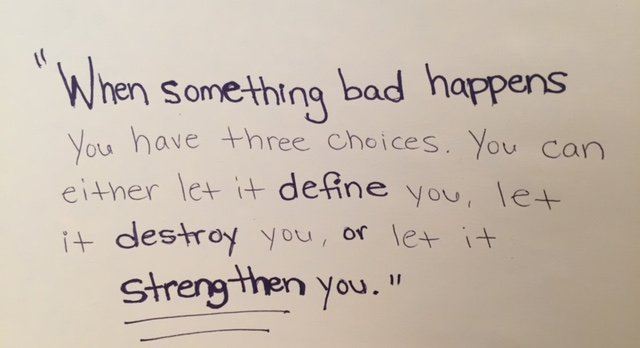 "When something bad happens
You have three choices. You can
either let it define you, let
it destroy you, or let it
strengthen you."